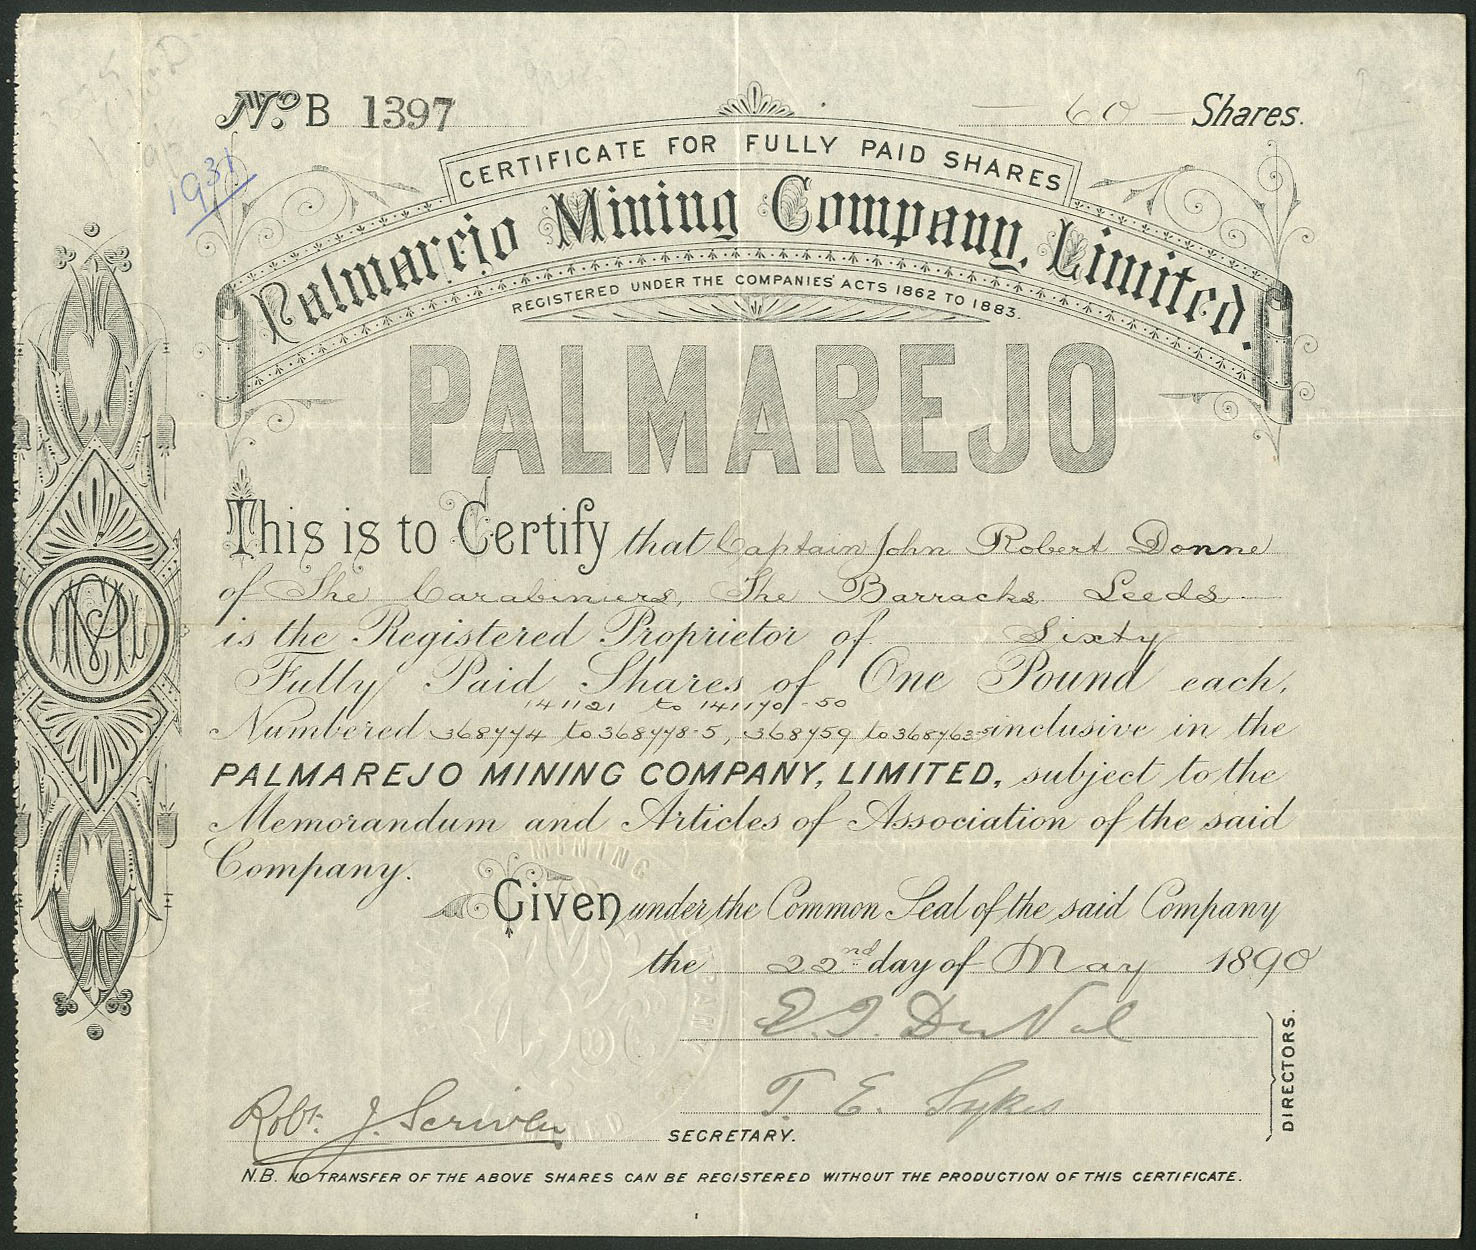 No. B 1397
— 60 — Shares.
1931
CERTIFICATE FOR FULLY PAID SHARES
Palmarejo Mining Company, Limited.
REGISTERED UNDER THE COMPANIES' ACTS 1862 TO 1883.
PALMAREJO
This is to Certify that Captain John Robert Donne
of The Carabiniers, The Barracks Leeds
is the Registered Proprietor of Sixty
Fully Paid Shares of One Pound each,
141121 to 141170 - 50
Numbered 368774 to 368778-5, 368759 to 368763-5 inclusive in the
PALMAREJO MINING COMPANY, LIMITED, subject to the
Memorandum and Articles of Association of the said
Company.
Given under the Common Seal of the said Company
the 22nd day of May 1890
E. J. Du Val
T. E. Sykes
DIRECTORS.
Robt. J. Scriven
SECRETARY.
N.B. NO TRANSFER OF THE ABOVE SHARES CAN BE REGISTERED WITHOUT THE PRODUCTION OF THIS CERTIFICATE.